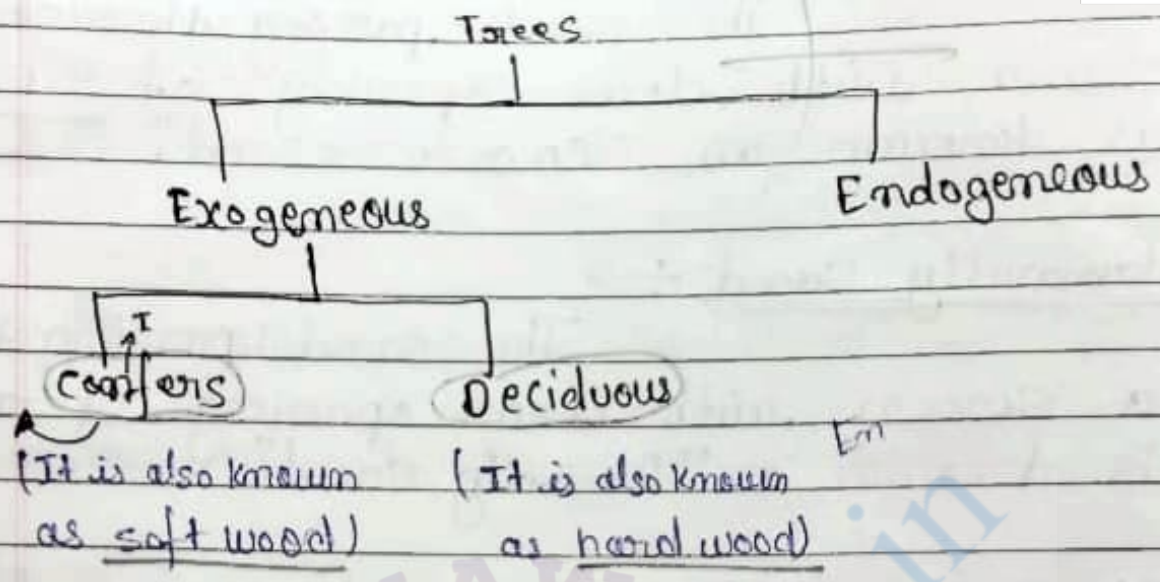 Trees
Exogeneous
Endogeneous
I
Conifers
Deciduous
(It is also known
as soft wood)
(It is also known
as hard wood)
Em
in